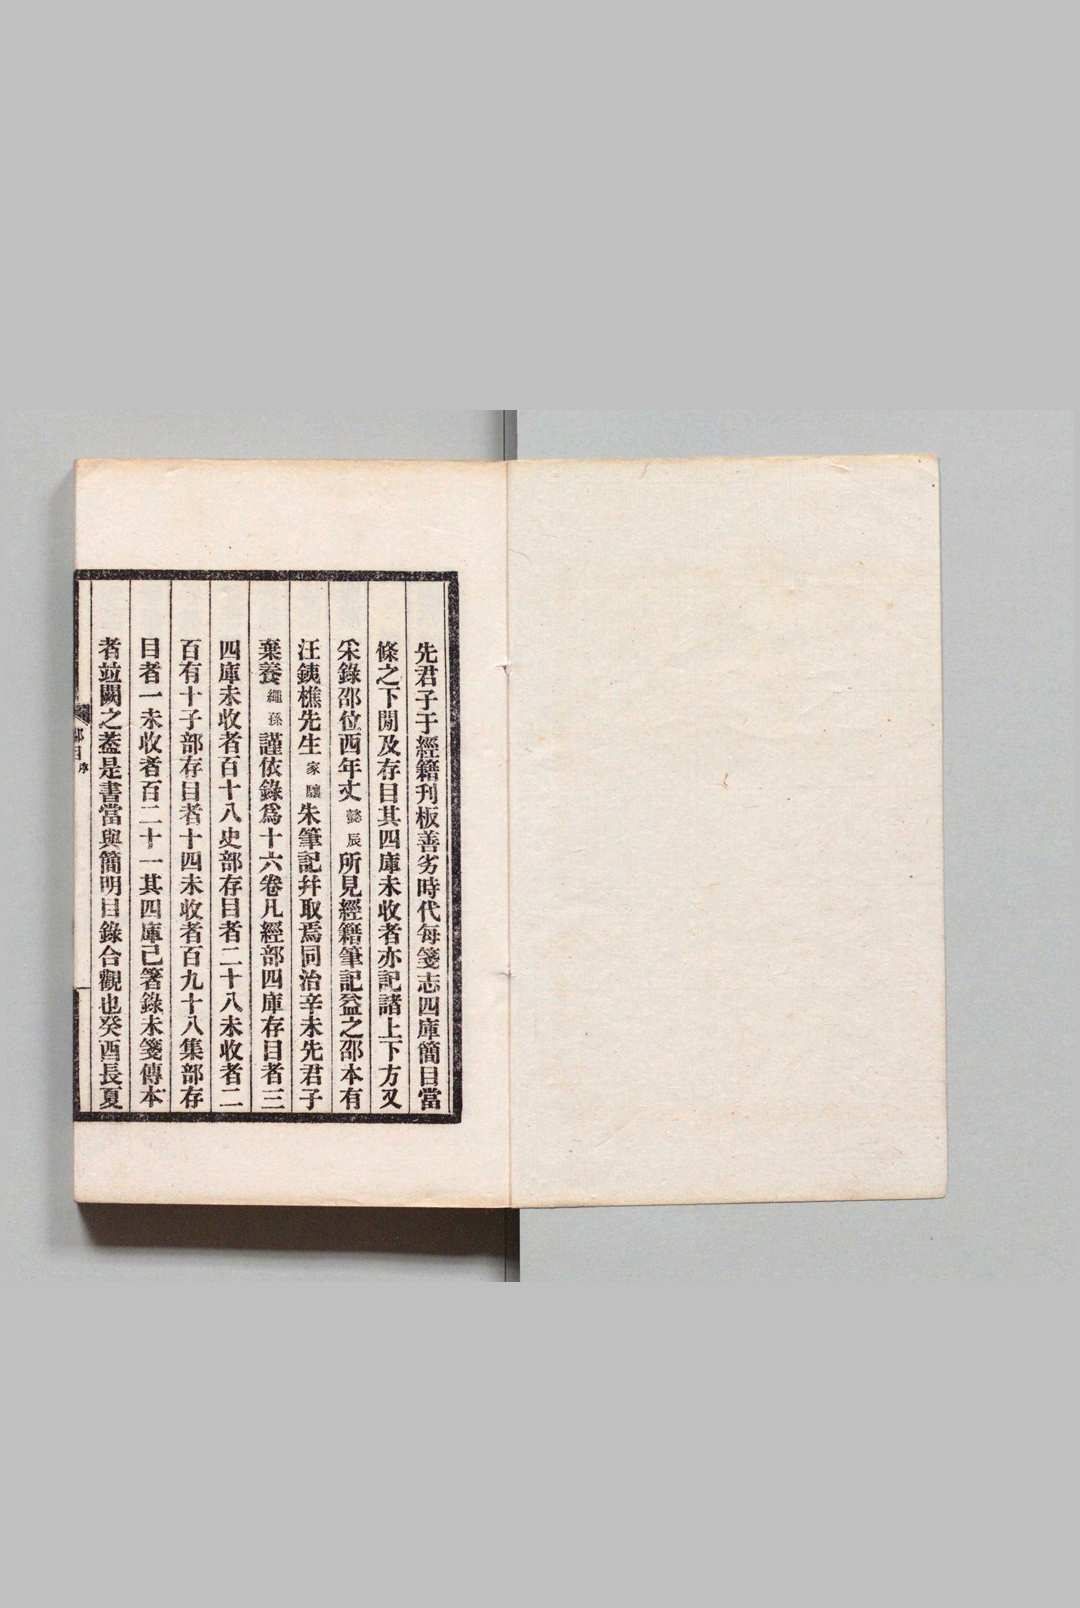 先君子于經籍刊板善劣時代每箋志四庫簡目當
條之下閒及存目其四庫未收者亦記諸上下方又
采錄邵位西年丈懿辰所見經籍筆記益之邵本有
汪銕樵先生家驤朱筆記幷取焉同治辛未先君子
棄養繩孫謹依錄爲十六卷凡經部四庫存目者三
四庫未收者百十八史部存目者二十八未收者二
百有十子部存目者十四未收者百九十八集部存
目者一未收者百二十一其四庫已箸錄未箋傳本
者竝闕之葢是書當與簡明目錄合觀也癸酉長夏
郘目 序
一